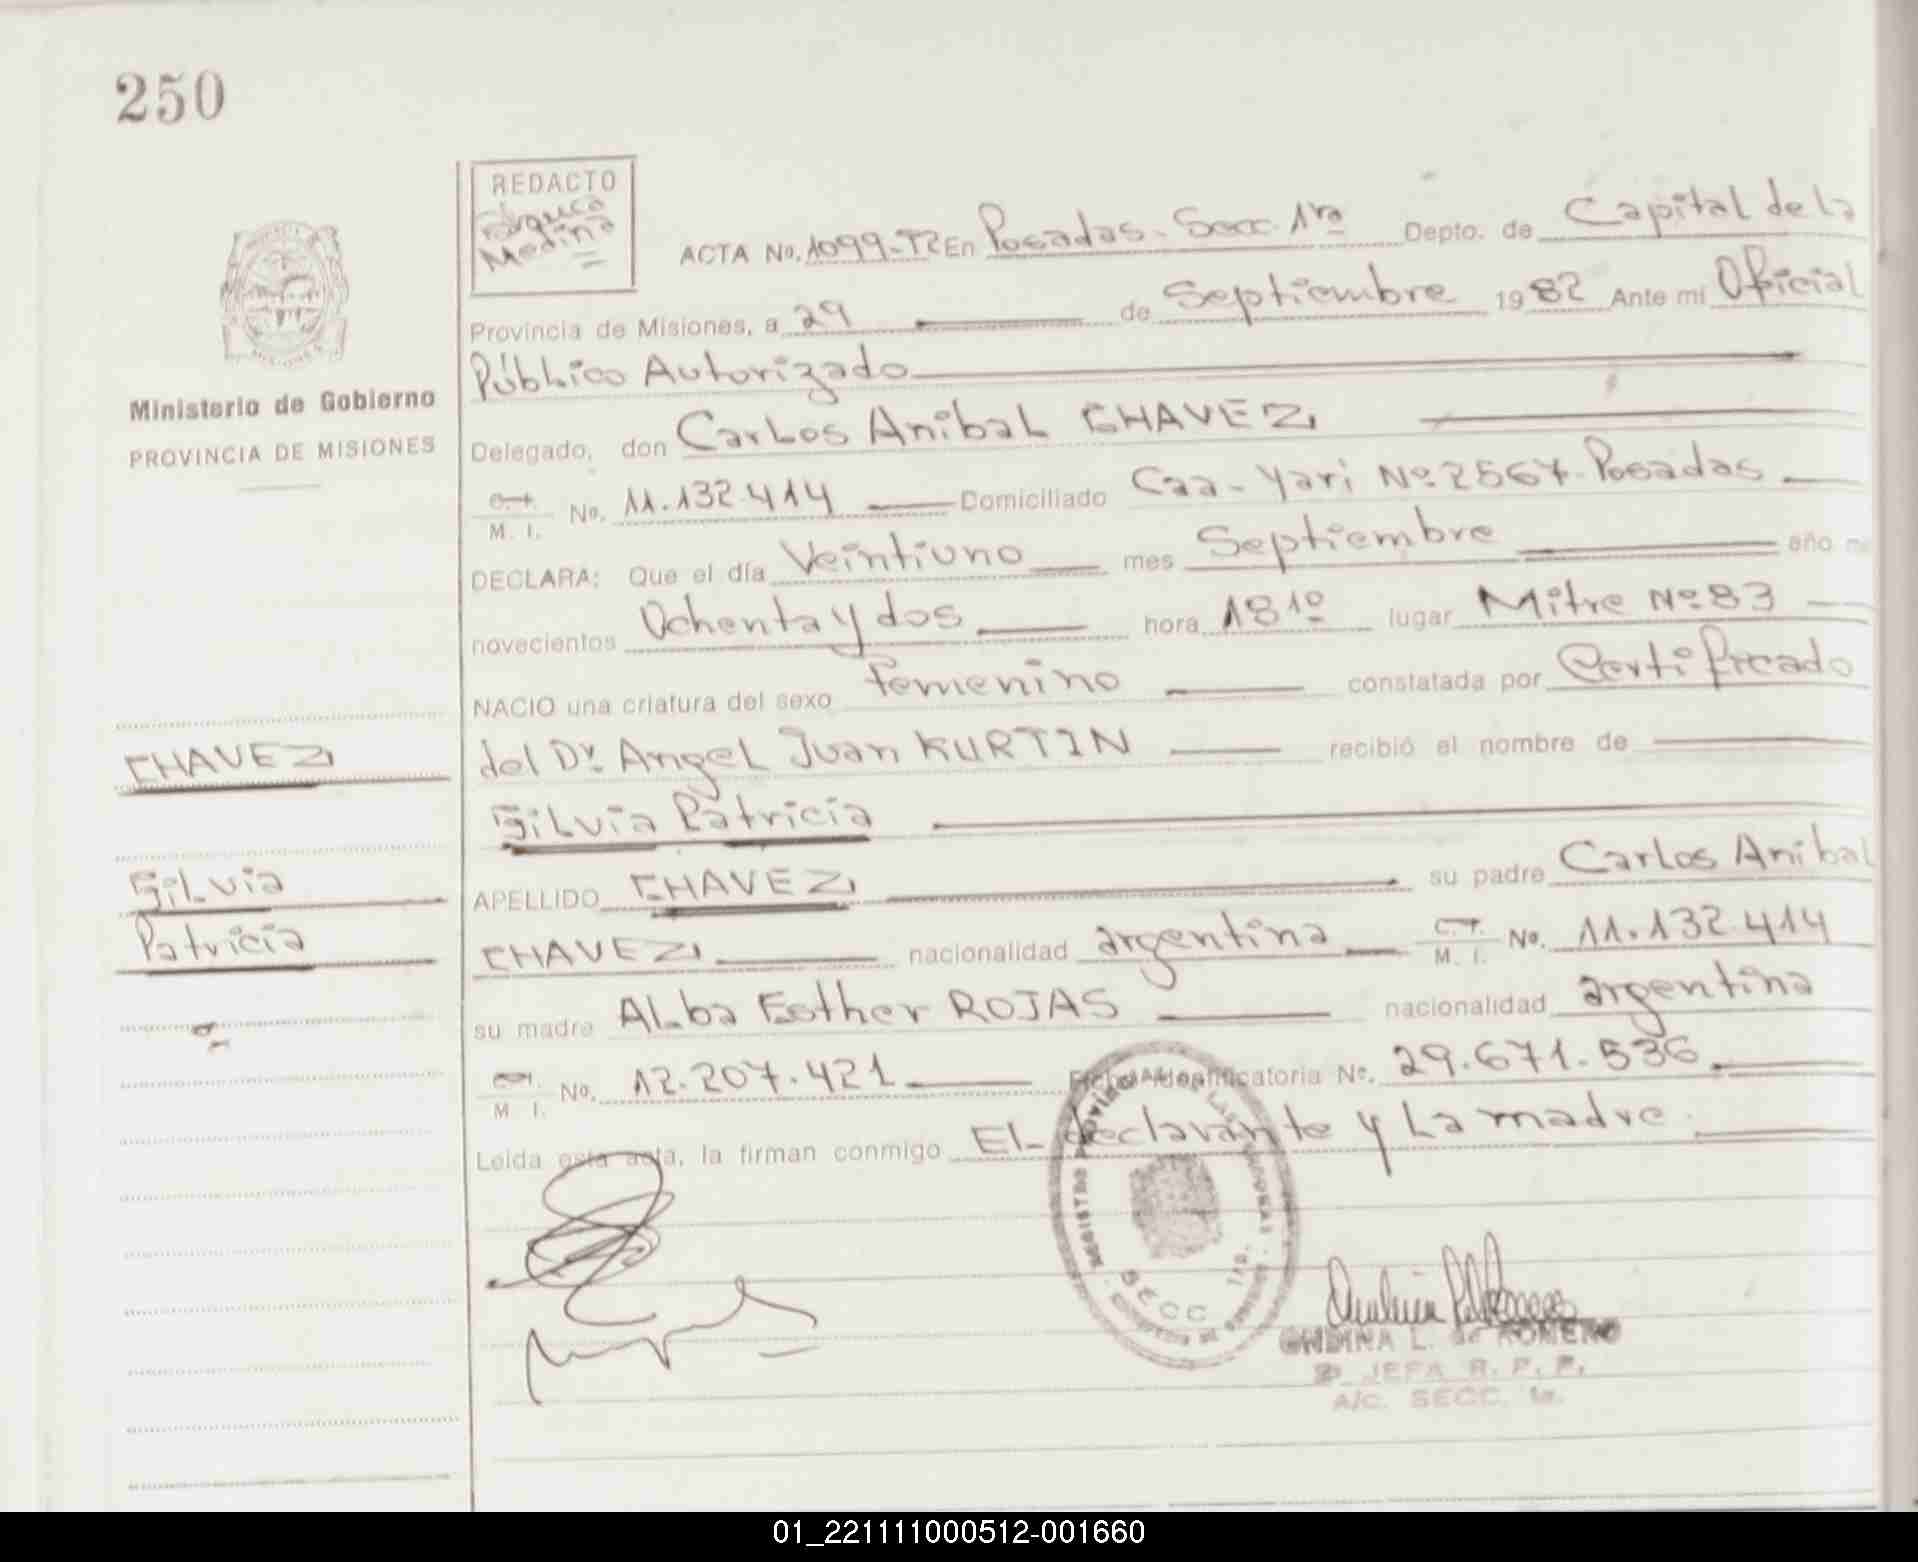 250
REDACTO
Medina
ACTA No. 1099-T2 En Posadas - Secc. 1ra Depto. de Capital de la
Provincia de Misiones, a 29 de Septiembre 1982 Ante mi Oficial
Público Autorizado
Ministerio de Gobierno
PROVINCIA DE MISIONES
Delegado, don Carlos Anibal CHAVEZ
M. I. No. 11.132.414 Domiciliado Caa-Yari Nº 2567-Posadas
DECLARA: Que el día Veintiuno mes Septiembre año
novecientos Ochenta y dos hora 18 1º lugar Mitre Nº 83
NACIO una criatura del sexo femenino constatada por Certificado
CHAVEZ
del Dr. Angel Juan KURTIN recibió el nombre de
Silvia Patricia
Silvia
APELLIDO CHAVEZ su padre Carlos Anibal
Patricia
CHAVEZ nacionalidad argentina M. I. No. 11.132.414
su madre Alba Esther ROJAS nacionalidad argentina
M I. No. 12.207.421 Ficha Identificatoria No. 29.671.536
Leida esta acta, la firman conmigo El declarante y La madre.
SECC 1ra.
L. de ROMERO
JEFA R. P. P.
A/C. SECC. 1a.
01_221111000512-001660